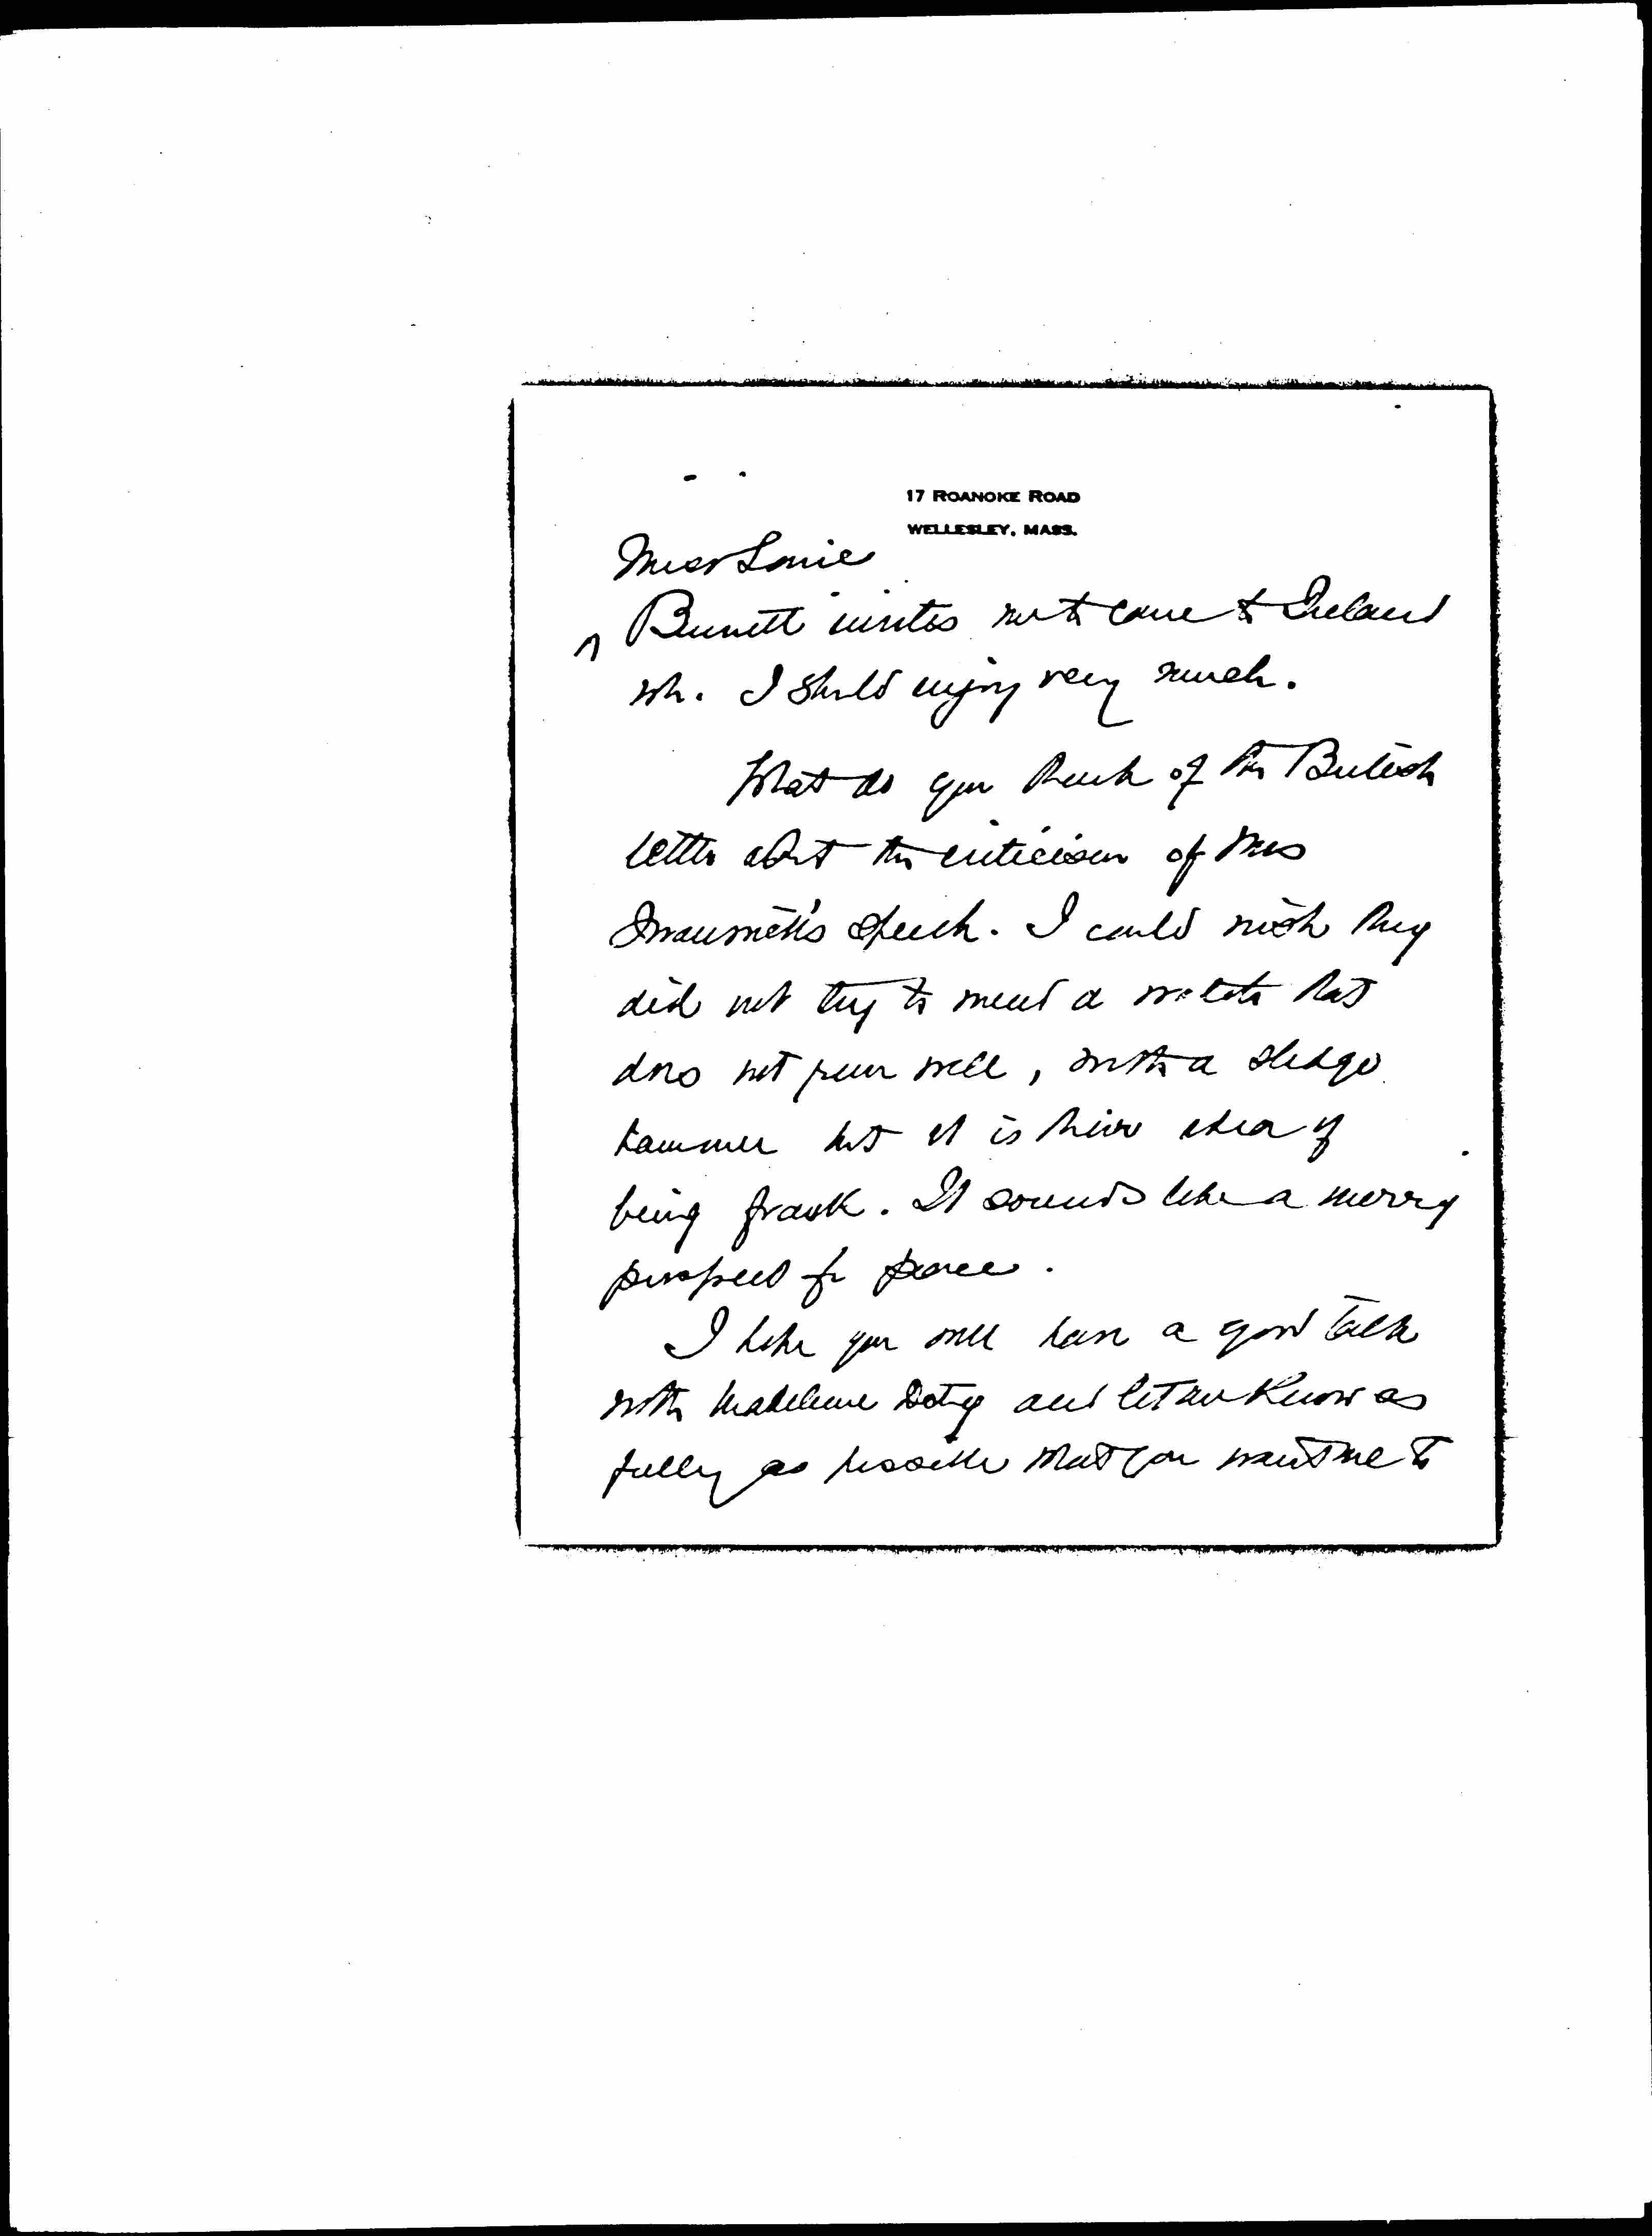 17 ROANOKE ROAD
WELLESLEY, MASS.
Miss Louie
^ Bennett invites me to come to Ireland
wh. I should enjoy very much.
What do you think of the British
letter about the criticism of Mrs
Swanwick's speech. I could wish they
did not try to mend a watch that
does not run well, with a sledge
hammer but it is their idea of
being frank. It sounds like a merry
prospect for peace.
I hope you will have a good talk
with Madeleine Doty and let me know as
fully as possible what you want me to